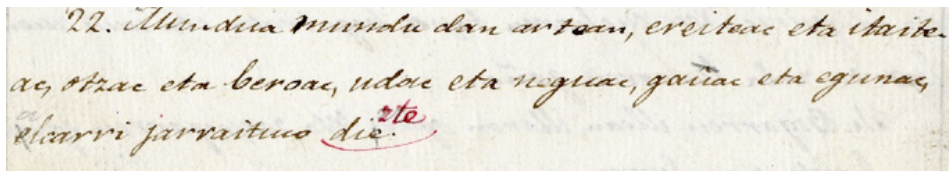 22. Mundua mundu dan artean, ereiteac eta itaite-
ac, otzac eta beroac, udac eta neguac, gauac eta egunac,
zte
elcarri jarraituco die.